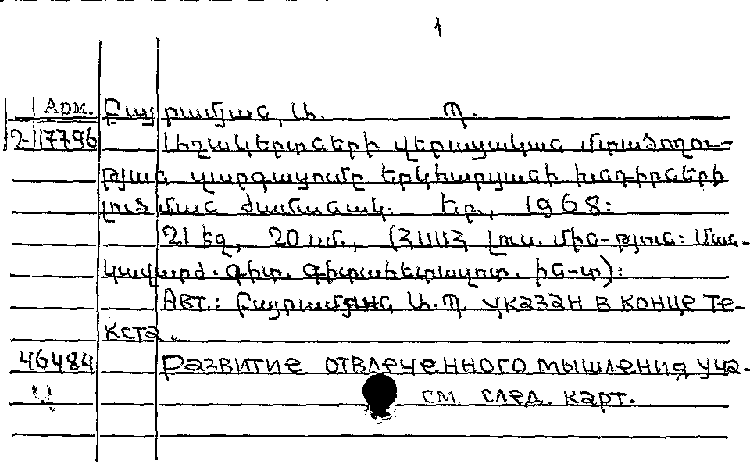 1
Арм. Բայրամյան, Ա. Պ.
2-17796 Աշակերտների վերացական մտածողու-
թյան զարգացումը երկրաչափության խնդիրների
լուծման ժամանակ. Եր., 1968:
21 էջ, 20 սմ., (ՀՍՍՀ լուս. մին-թյուն: Ման-
կավարժ. գիտ. գիտահետազոտ. ին-տ):
Авт.: Բայրամյան Ա.Պ. указан в конце те-
кста.
46484 Развитие отвлеченного мышления уча-
см след. карт.